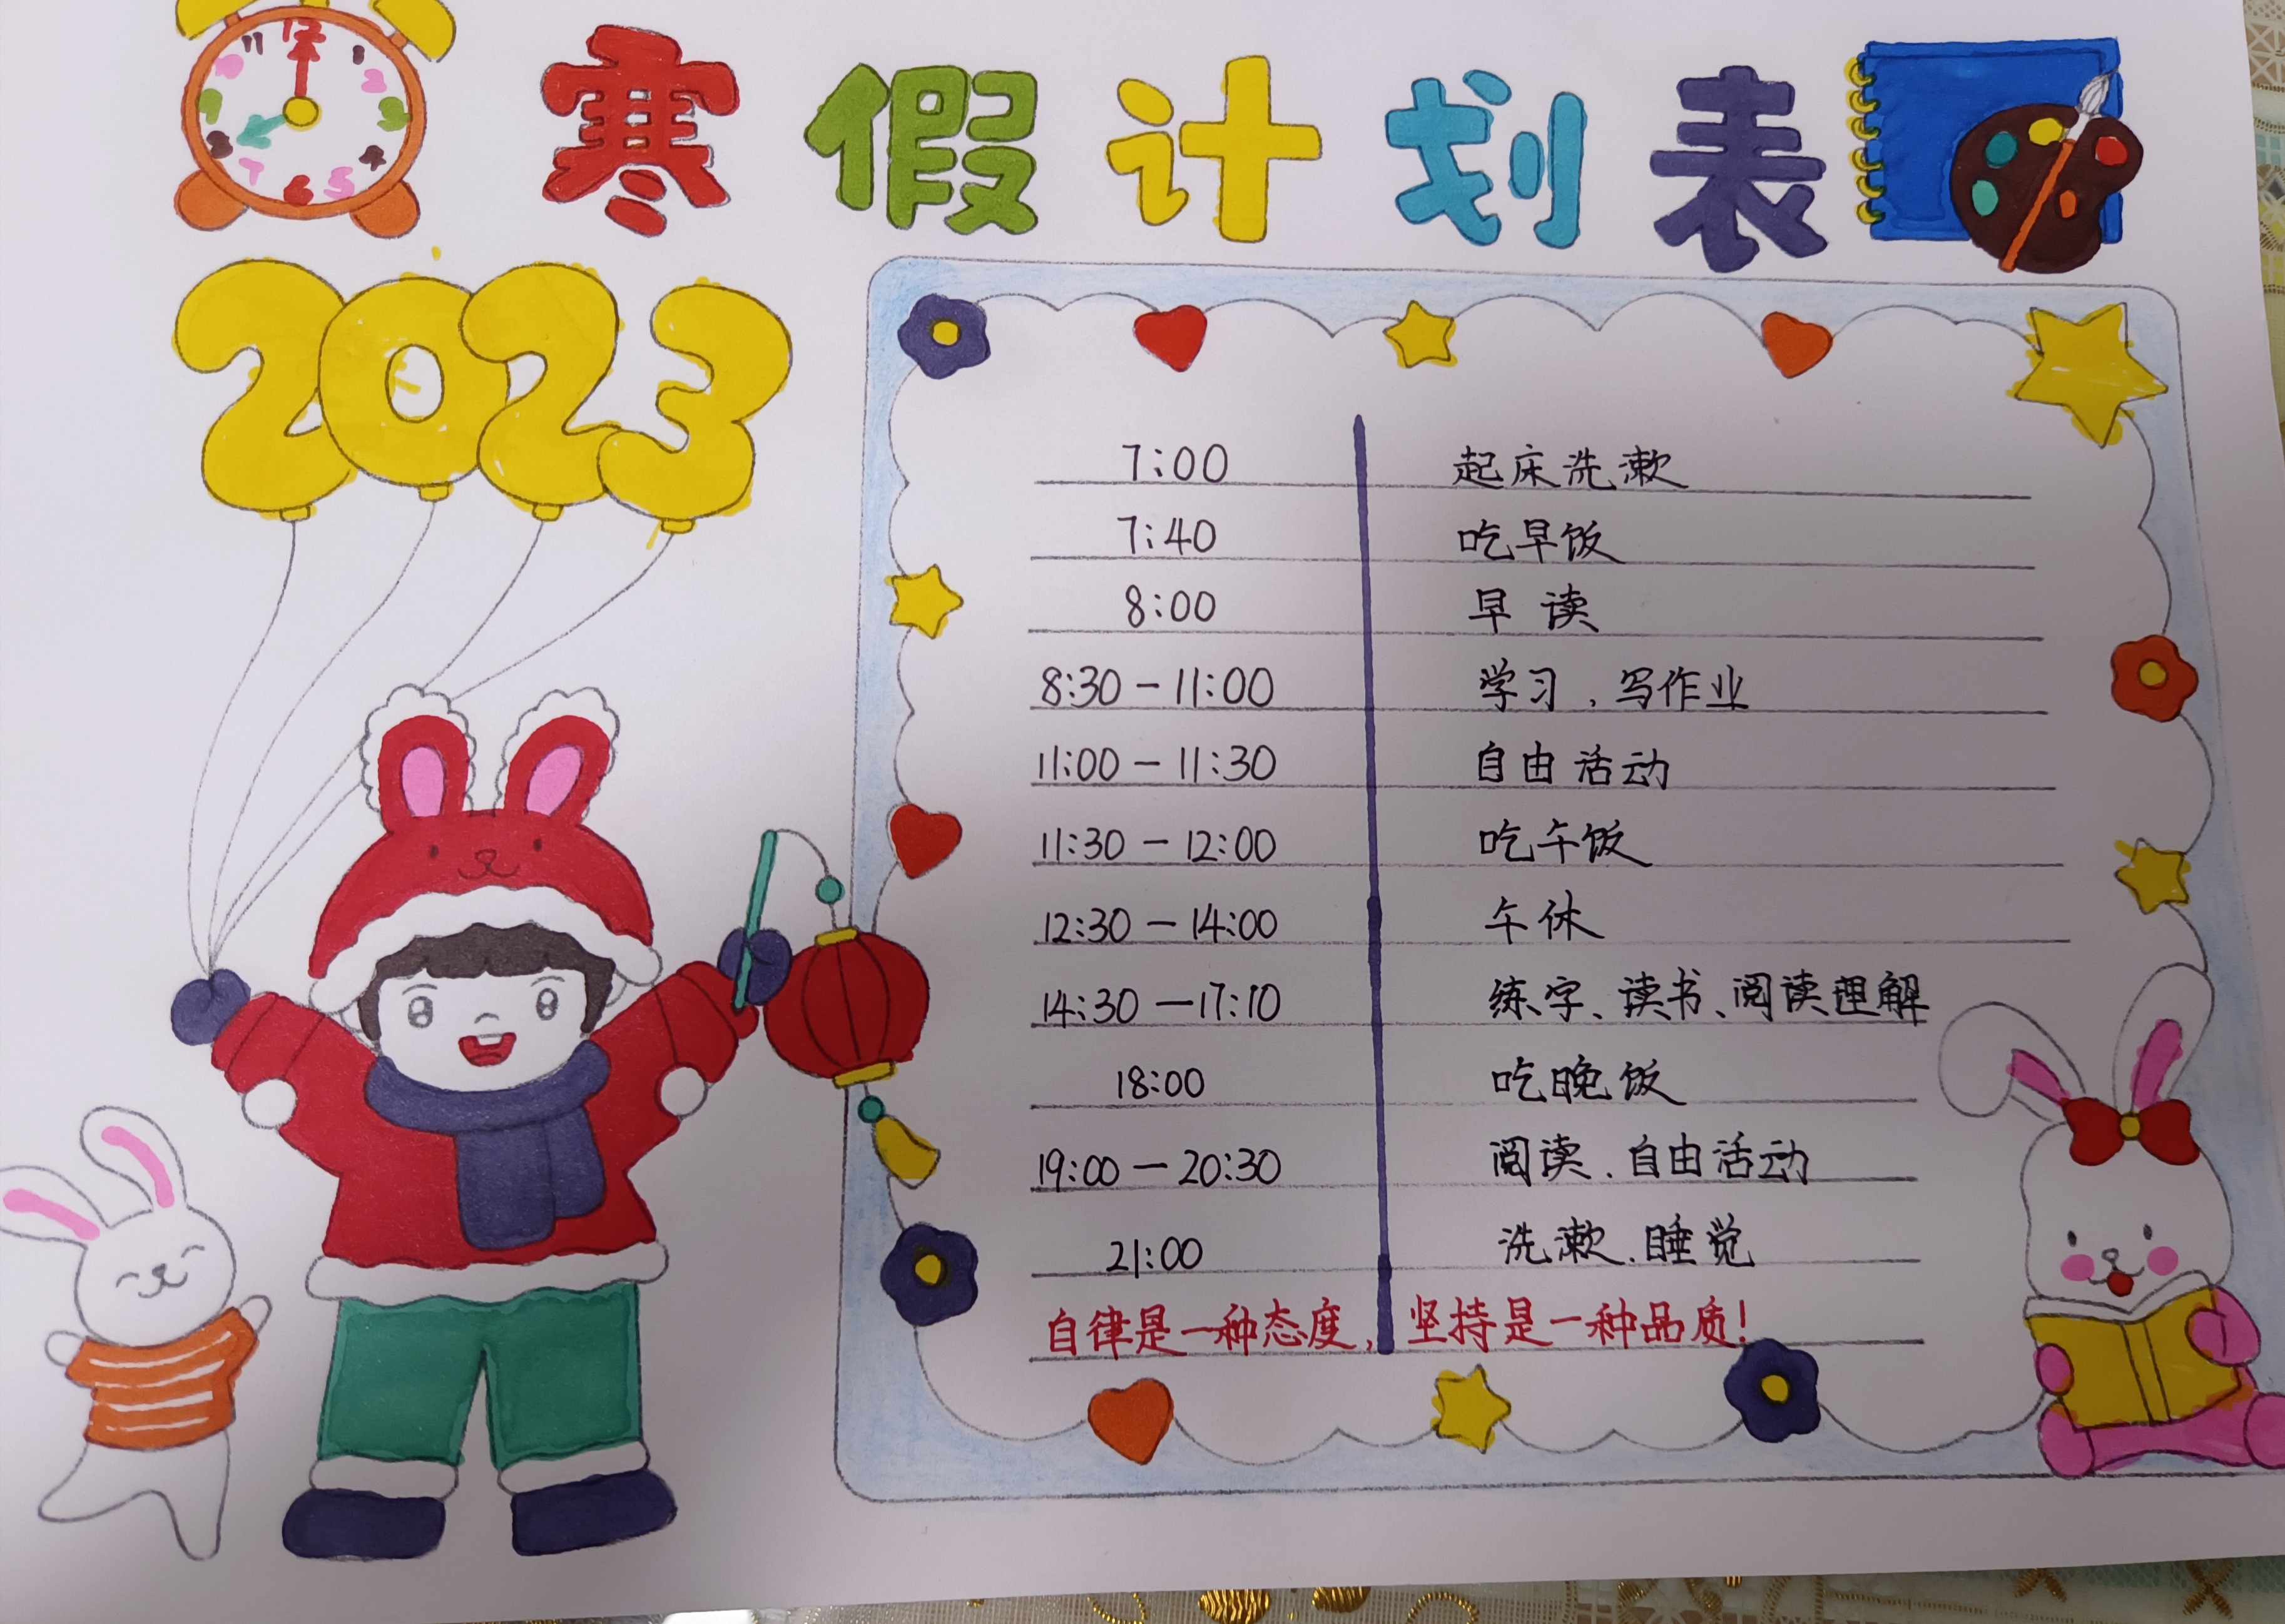 12
11 1
10 2
9 3
8 4
7 6 5
寒假计划表
2023
7:00 起床洗漱
7:40 吃早饭
8:00 早读
8:30-11:00 学习,写作业
11:00-11:30 自由活动
11:30-12:00 吃午饭
12:30-14:00 午休
14:30-17:10 练字、读书、阅读理解
18:00 吃晚饭
19:00-20:30 阅读、自由活动
21:00 洗漱、睡觉
自律是一种态度,坚持是一种品质!